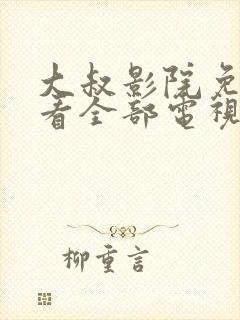 大叔影院免
看全部電視
柳重言